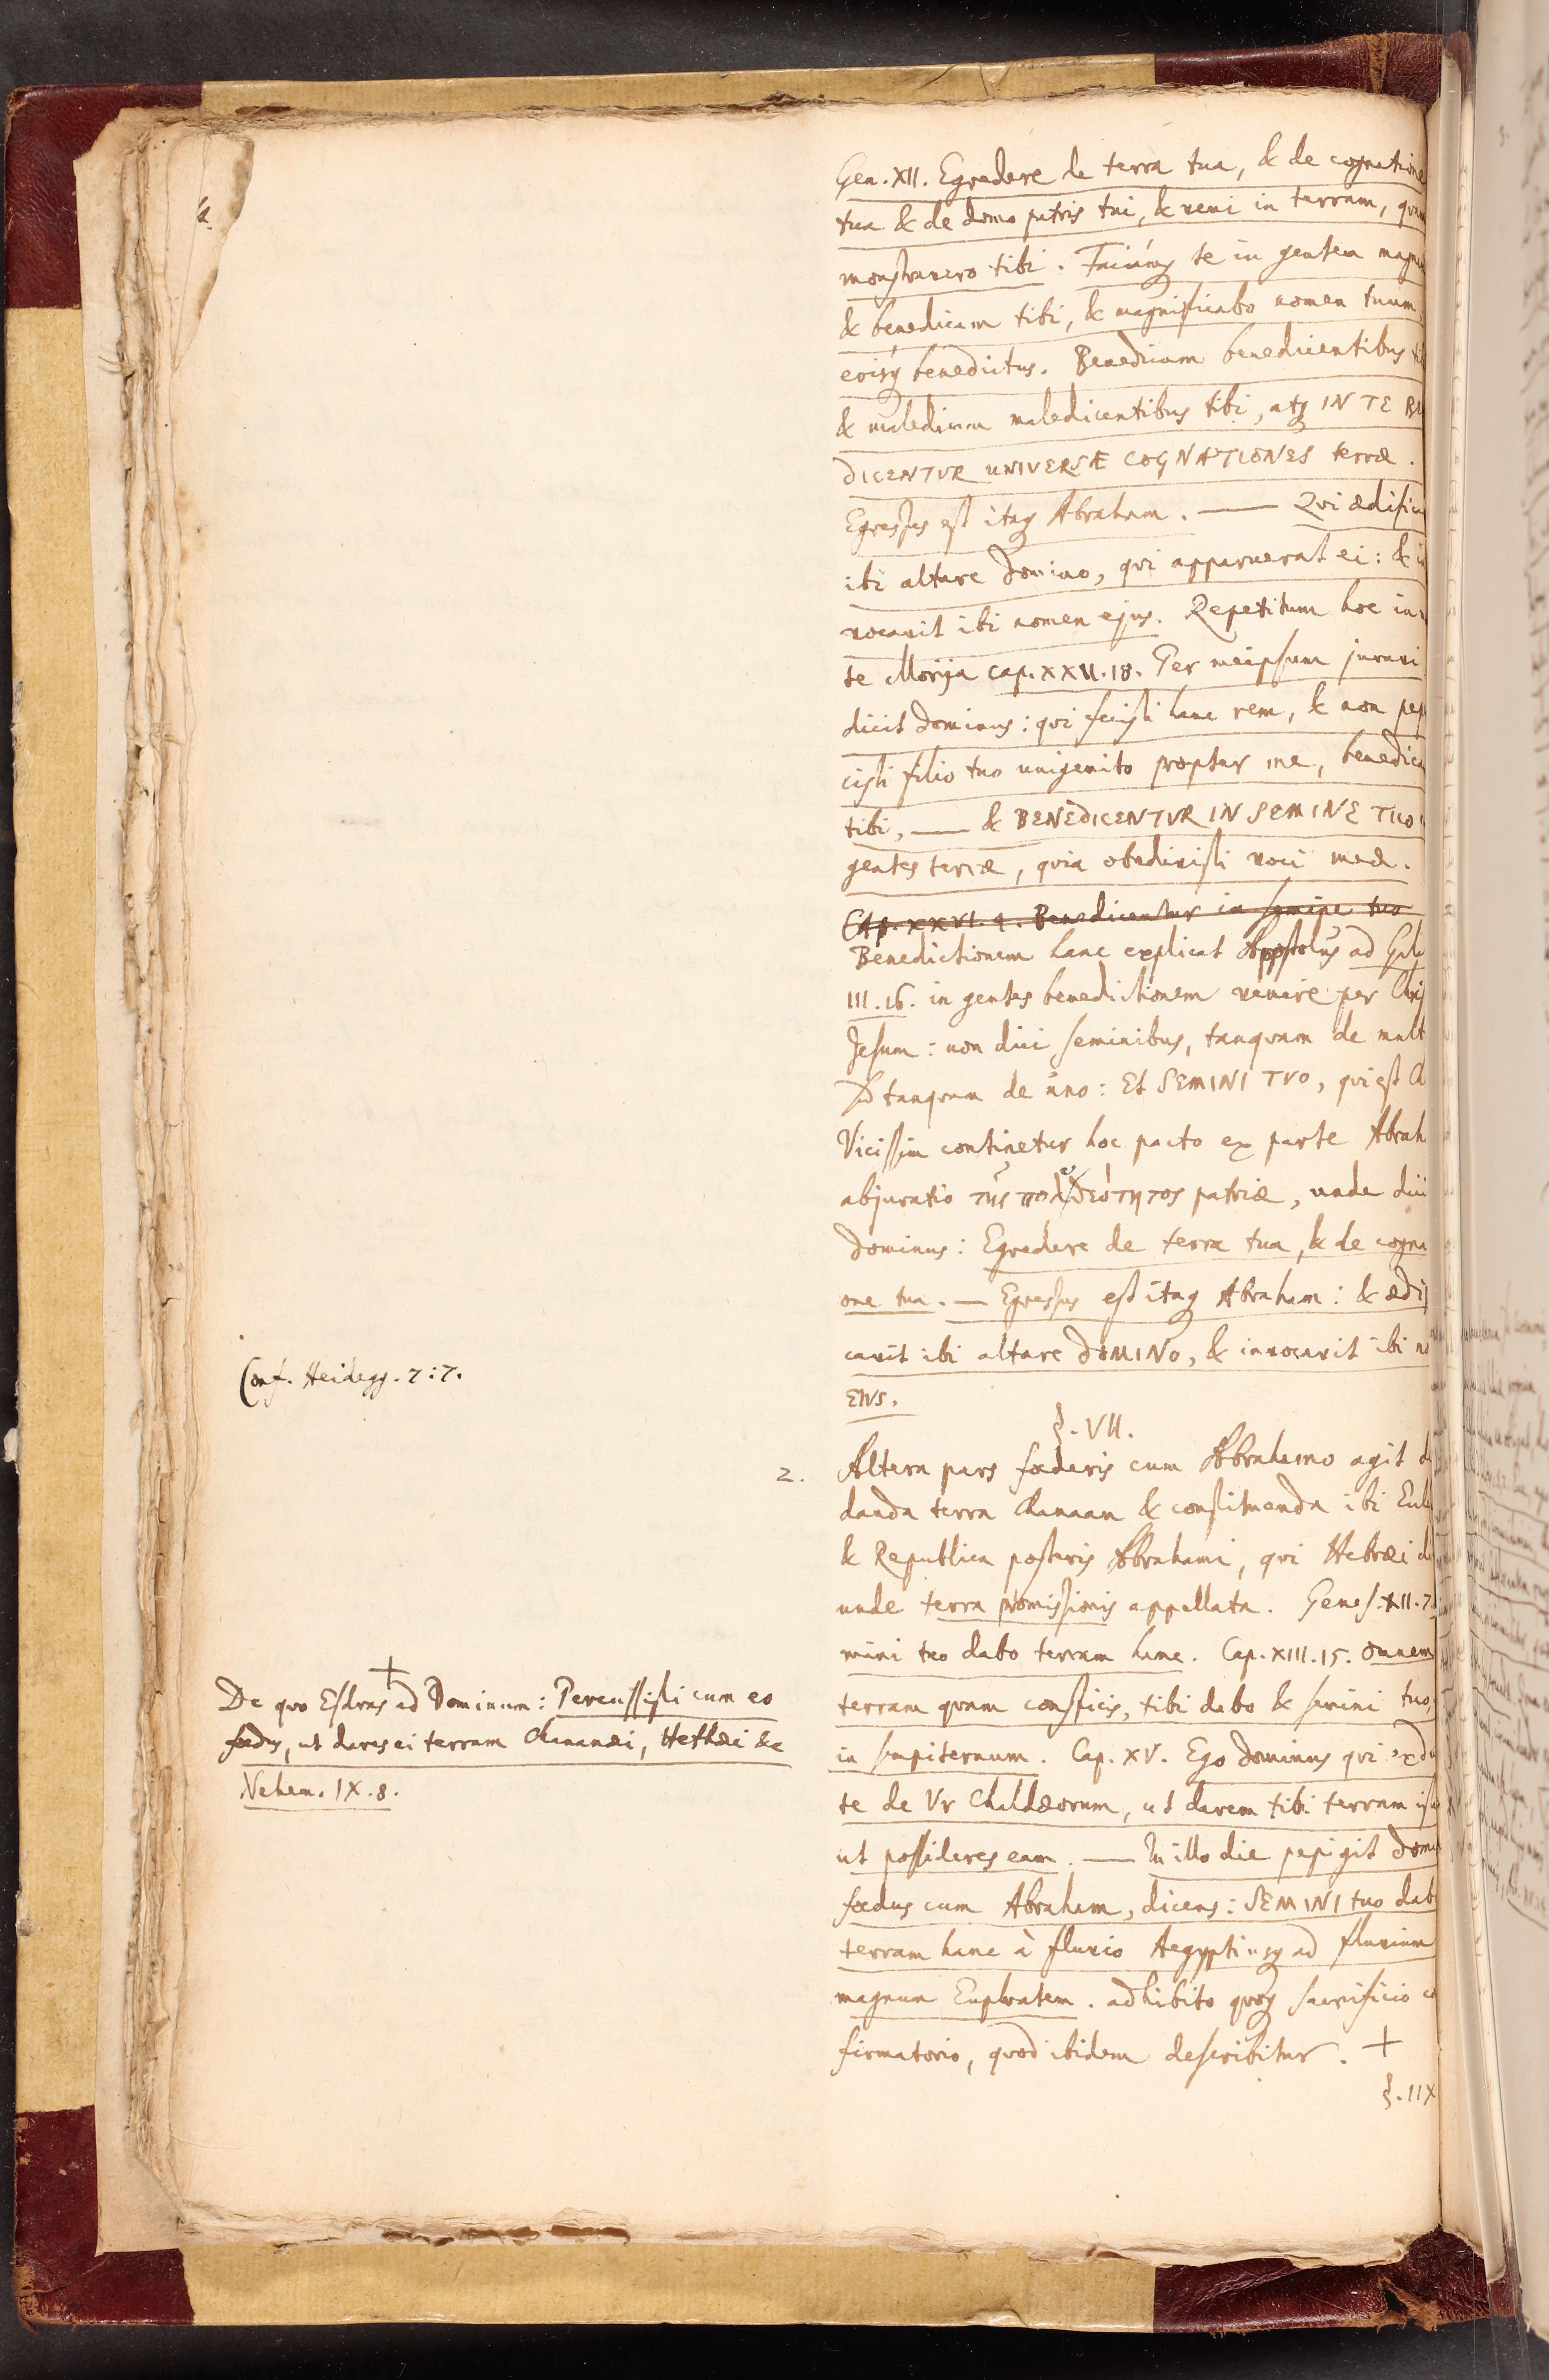 Gen. XII. Egredere de terra tua, & de cognatione
tua & de domo patris tui, & veni in terram, quam
monstravero tibi. Faciamq; te in gentem magn
& benedicam tibi, & magnificabo nomen tuum,
erisq; benedictus. Benedicam benedicentibus ti
& maledicam maledicentibus tibi, atq; IN TE BE
DICENTVR UNIVERSÆ COGNATIONES terræ.
Egressus est itaq; Abraham. — Qvi ædifica
ibi altare Domino, qvi apparuerat ei: & in
vocavit ibi nomen ejus. Repetitum hoc in
te Morija cap. XXII. 18. Per meipsum juravi
dicit Dominus: qvi fecisti hanc rem, & non pep
cisti filio tuo unigenito propter me, benedica
tibi, — & BENEDICENTVR IN SEMINE TUO
gentes terræ, qvia obedivisti voci meæ.
Cap. XXVI. 4. Benedicentur in semine tuo
Benedictionem hanc explicat Appostolus ad Gal
III. 16. in gentes benedictionem venire per Chris
Jesum: non dici seminibus, tanqvam de mult
sed tanqvam de uno: Et SEMINI TVO, qvi est C
Vicissim continetur hoc pacto ex parte Abrah
abjuratio τῆς πολυθεότητος patriæ, unde dici
Dominus: Egredere de terra tua, & de cogna
one tua. — Egressus est itaq; Abraham: & ædif
cavit ibi altare DOMINO, & invocavit ibi no
EIVS.
Conf. Heidegg. 7:7.
§. VII.
2. Altera pars fœderis cum Abrahamo agit d
danda terra Chanaan & constituenda ibi Eccl
& Republica posteris Abrahami, qvi Hebræi d
unde terra promissionis appellata. Genes. XII. 7.
mini tuo dabo terram hanc. Cap. XIII. 15. Omnem
terram qvam conspicis, tibi dabo & semini tuo,
in sempiternum. Cap. XV. Ego Dominus qvi edu
te de Vr Chaldæorum, ut darem tibi terram ist
ut possideres eam. — In illo die pepigit Domi
fœdus cum Abraham, dicens: SEMINI tuo dab
terram hanc à fluvio Aegypti usq; ad fluvium
magnum Euphratem. adhibito qvoq; sacrificio co
firmatorio, qvod ibidem describitur. +
+
De quo Esdras ad Dominum: Percussisti cum eo
fœdus, ut dares ei terram Chananæi, Hethæi &c
Nehem. IX. 8.
§. IIX